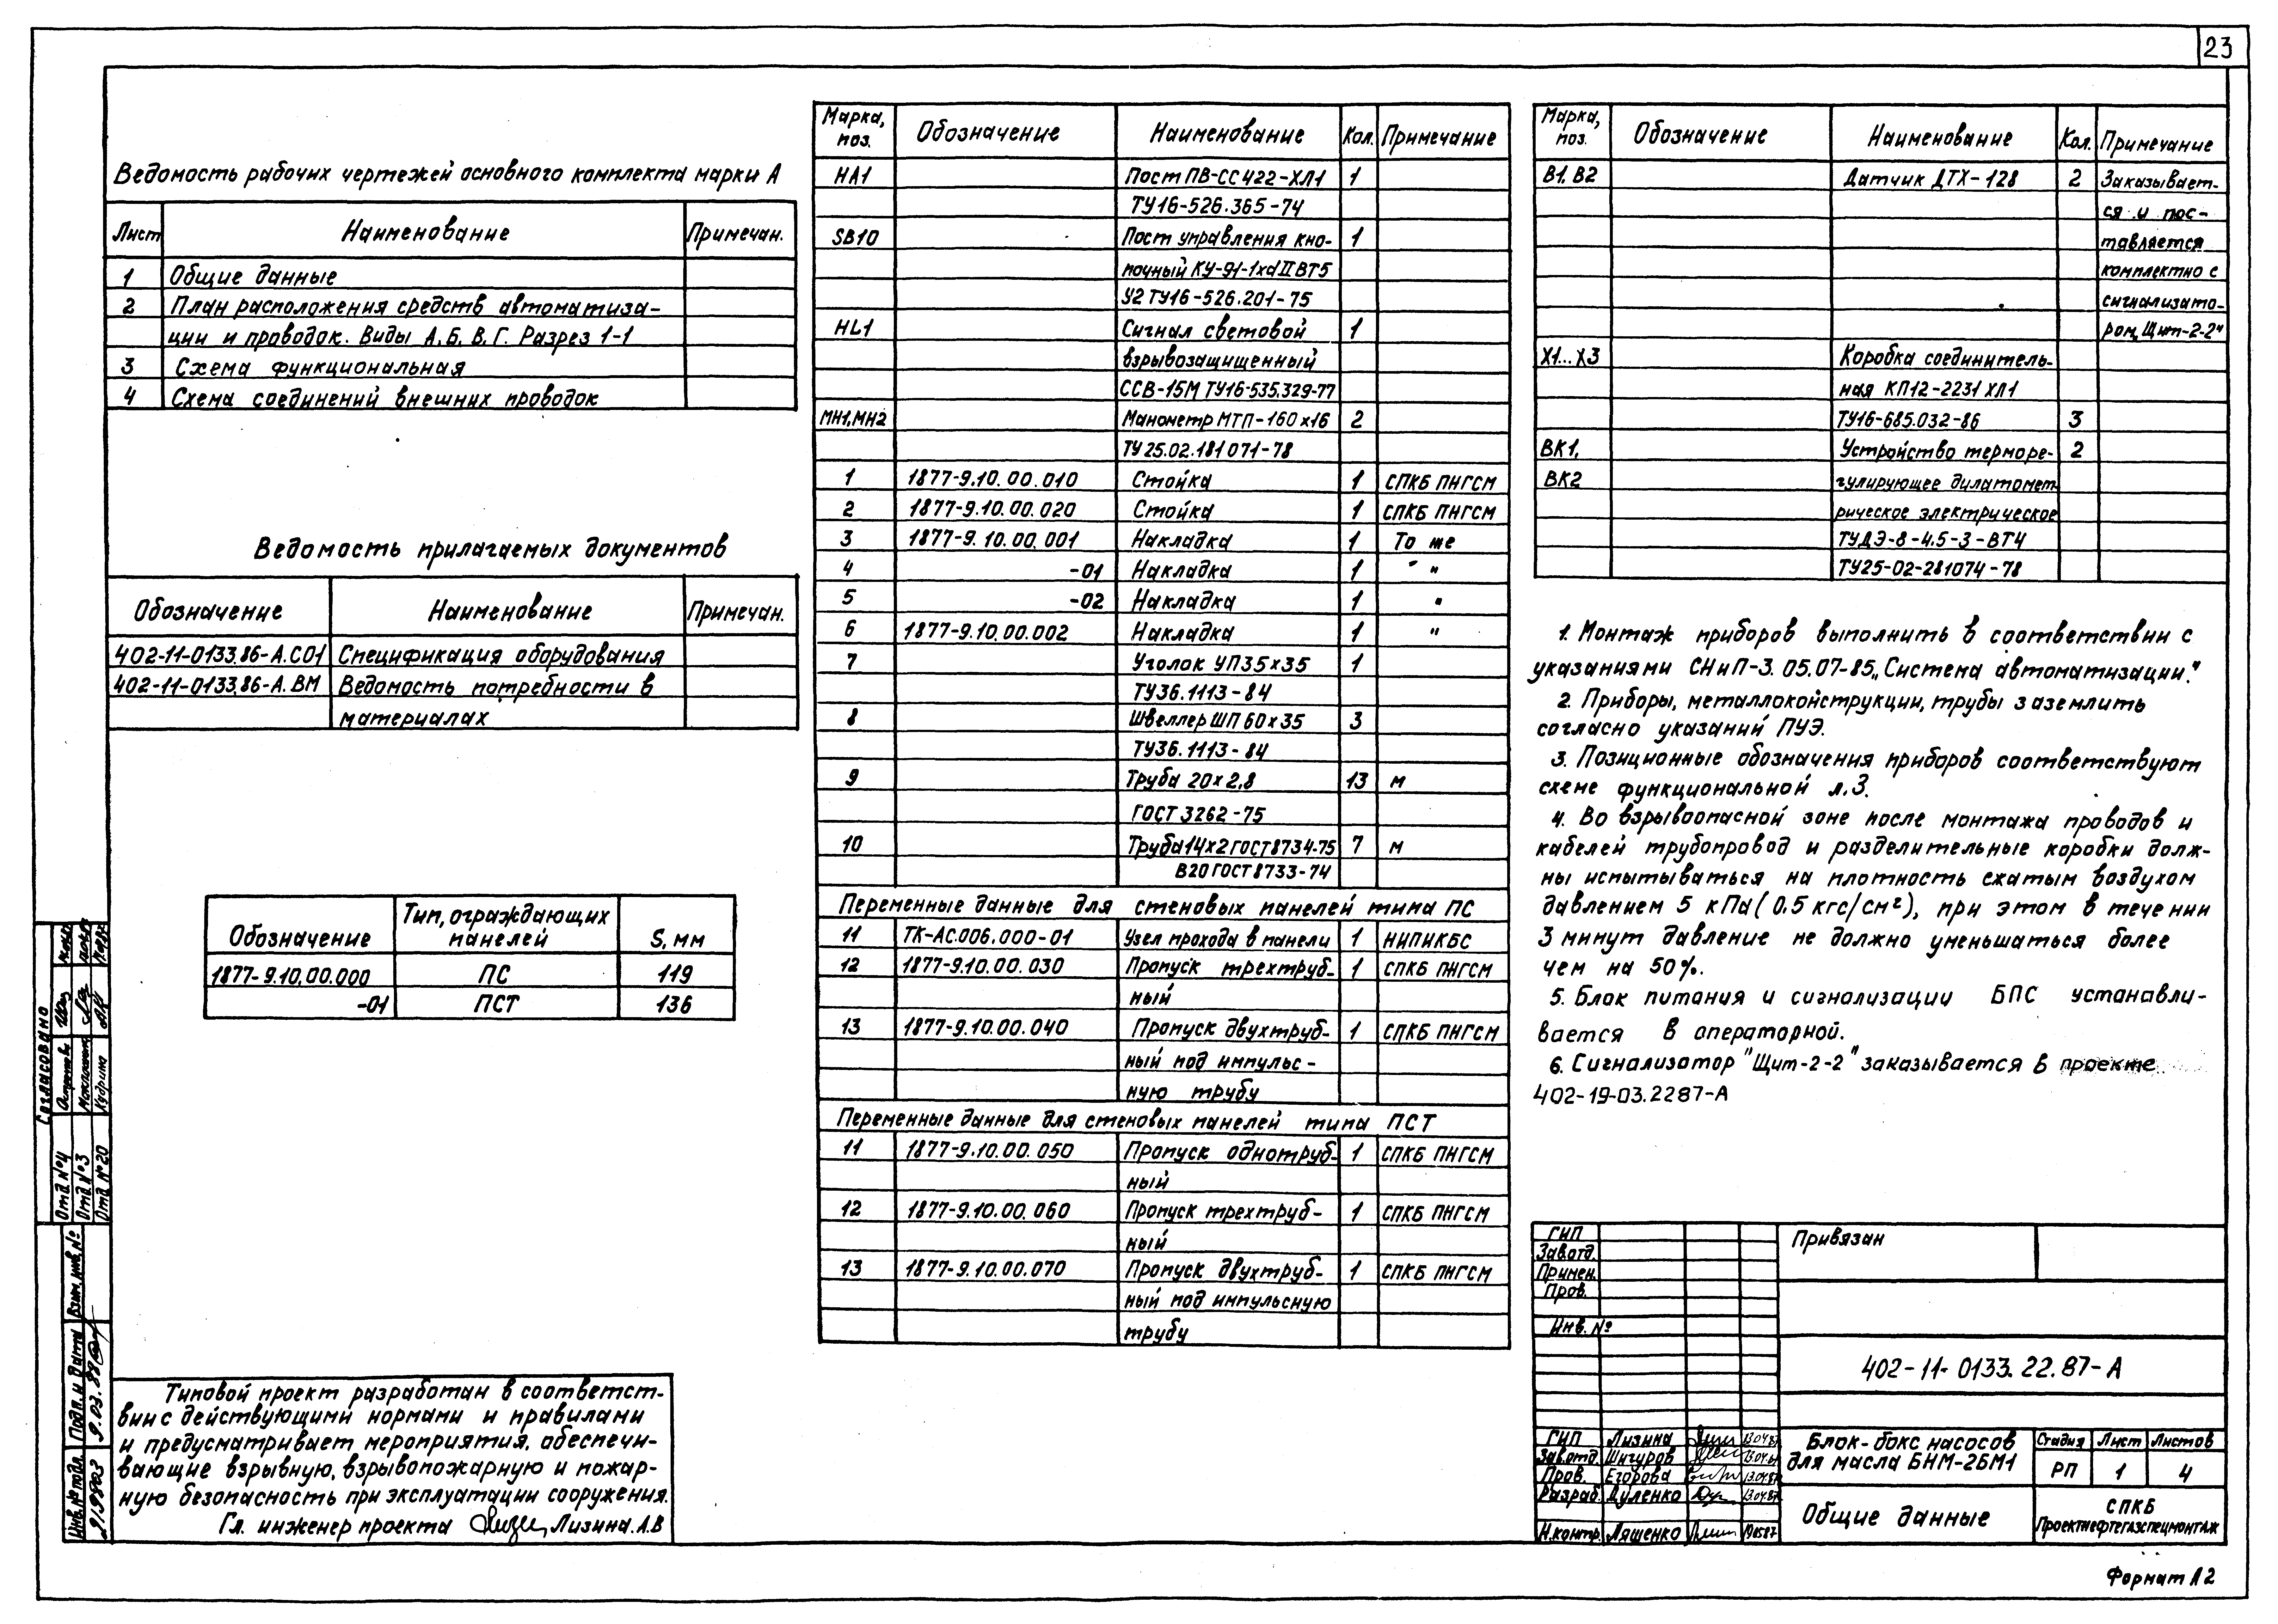 23
Ведомость рабочих чертежей основного комплекта марки А
Лист Наименование Примечан.
1 Общие данные
2 План расположения средств автоматиза-
ции и проводок. Виды А, Б, В, Г. Разрез 1-1
3 Схема функциональная
4 Схема соединений внешних проводок
Ведомость прилагаемых документов
Обозначение Наименование Примечан.
402-11-0133.86-А.СО1 Спецификация оборудования
402-11-0133.86-А.ВМ Ведомость потребности в
материалах
Обозначение Тип, ограждающих панелей S, мм
1877-9.10.00.000 ПС 119
-01 ПСТ 136
Типовой проект разработан в соответст-
вии с действующими нормами и правилами
и предусматривает мероприятия, обеспечи-
вающие взрывную, взрывопожарную и пожар-
ную безопасность при эксплуатации сооружения.
Гл. инженер проекта Лизина.А.В
Марка, поз. Обозначение Наименование Кол. Примечание
НА1 Пост ПВ-СС422-ХЛ1 1
ТУ16-526.365-74
SB10 Пост управления кно- 1
почный КУ-91-1хdIIВТ5
У2 ТУ16-526.201-75
HL1 Сигнал световой 1
взрывозащищенный
ССВ-15М ТУ16-535.329-77
МН1,МН2 Манометр МТП-160х16 2
ТУ25.02.181071-78
1 1877-9.10.00.010 Стойка 1 СПКБ ПНГСМ
2 1877-9.10.00.020 Стойка 1 СПКБ ПНГСМ
3 1877-9.10.00.001 Накладка 1 То же
4 -01 Накладка 1 "
5 -02 Накладка 1 "
6 1877-9.10.00.002 Накладка 1 "
7 Уголок УП35х35 1
ТУ36.1113-84
8 Швеллер ШП 60х35 3
ТУ36.1113-84
9 Труба 20х2,8 13 м
ГОСТ 3262-75
10 Труба14х2ГОСТ8734-75 7 м
В20ГОСТ8733-74
Переменные данные для стеновых панелей типа ПС
11 ТК-АС.006.000-01 Узел прохода в панели 1 НИПИКБС
12 1877-9.10.00.030 Пропуск трехтруб- 1 СПКБ ПНГСМ
ный
13 1877-9.10.00.040 Пропуск двухтруб- 1 СПКБ ПНГСМ
ный под импульс-
ную трубу
Переменные данные для стеновых панелей типа ПСТ
11 1877-9.10.00.050 Пропуск однотруб- 1 СПКБ ПНГСМ
ный
12 1877-9.10.00.060 Пропуск трехтруб- 1 СПКБ ПНГСМ
ный
13 1877-9.10.00.070 Пропуск двухтруб- 1 СПКБ ПНГСМ
ный под импульсную
трубу
Марка, поз. Обозначение Наименование Кол. Примечание
В1. В2 Датчик ДТХ-128 2 Заказывает-
ся и пос-
тавляется
комплектно с
сигнализато-
ром „Щит-2-2"
Х1...Х3 Коробка соединитель-
ная КП12-2231 ХЛ1
ТУ16-685.032-86 3
ВК1, Устройство терморе- 2
ВК2 гулирующее дилатомет-
рическое электрическое
ТУДЭ-8-4.5-3-ВТ4
ТУ25-02-281074-78
1. Монтаж приборов выполнить в соответствии с
указаниями СНиП-3.05.07-85 „Система автоматизации".
2. Приборы, металлоконструкции, трубы заземлить
согласно указаний ПУЭ.
3. Позиционные обозначения приборов соответствуют
схеме функциональной л.3.
4. Во взрывоопасной зоне после монтажа проводов и
кабелей трубопровод и разделительные коробки долж-
ны испытываться на плотность сжатым воздухом
давлением 5 кПа (0.5 кгс/см²), при этом в течении
3 минут давление не должно уменьшаться более
чем на 50%.
5. Блок питания и сигнализации БПС устанавли-
вается в операторной.
6. Сигнализатор "Щит-2-2" заказывается в проекте
402-19-03.2287-А
ГИП
Зав.отд.
Примен.
Пров.
Инв. №
Привязан
402-11-0133.22.87-А
ГИП Лизина 13.04.87
Зав.отд. Шигуров 13.04.87
Пров. Егорова 13.04.87
Разраб. Дуленко 13.04.87
Н.контр. Ляшенко
Блок-бокс насосов
для масла БНМ-2БМ1
Стадия Лист Листов
РП 1 4
Общие данные
СПКБ
Проектнефтегазспецмонтаж
Формат А2
Согласовано
Отд №4
Отд №3
Отд №20 Кудрина
Взам. инв. №
Подп. и дата 9.03.88
Инв. № подл.